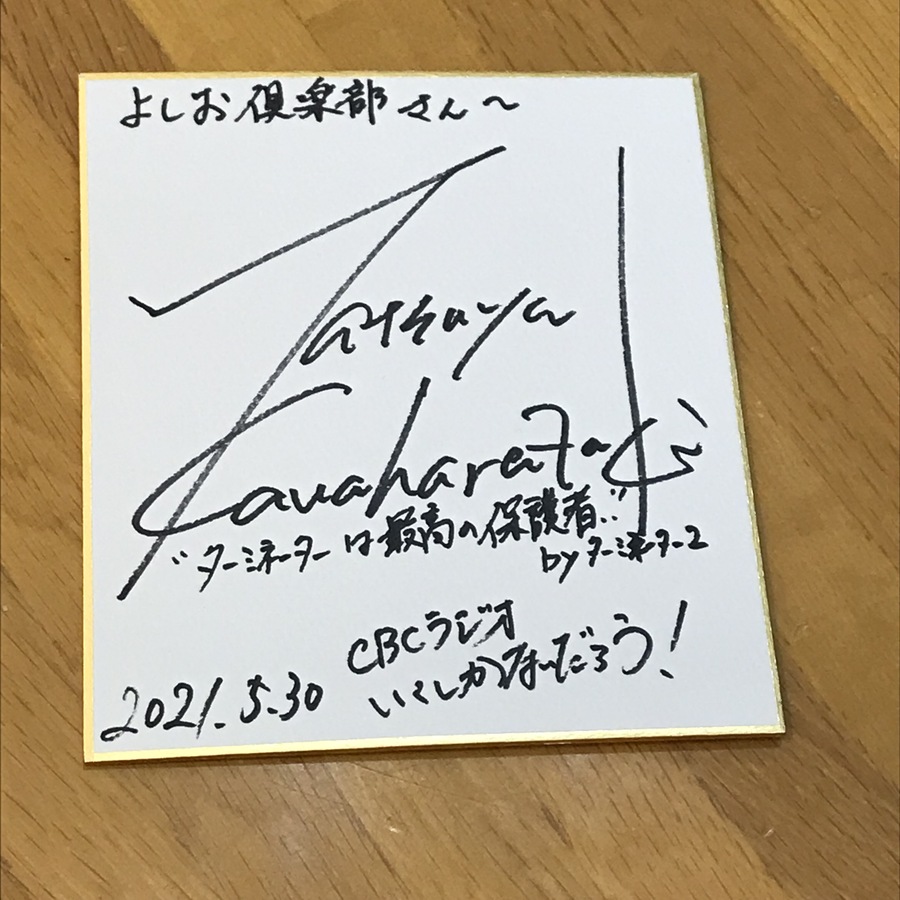 よしお倶楽部さん〜
Tatsuya
Kawaharataki
"ターミネーターは最高の保護者!!"
by ターミネーター2
CBCラジオ
いくしかないだろう!
2021.5.30